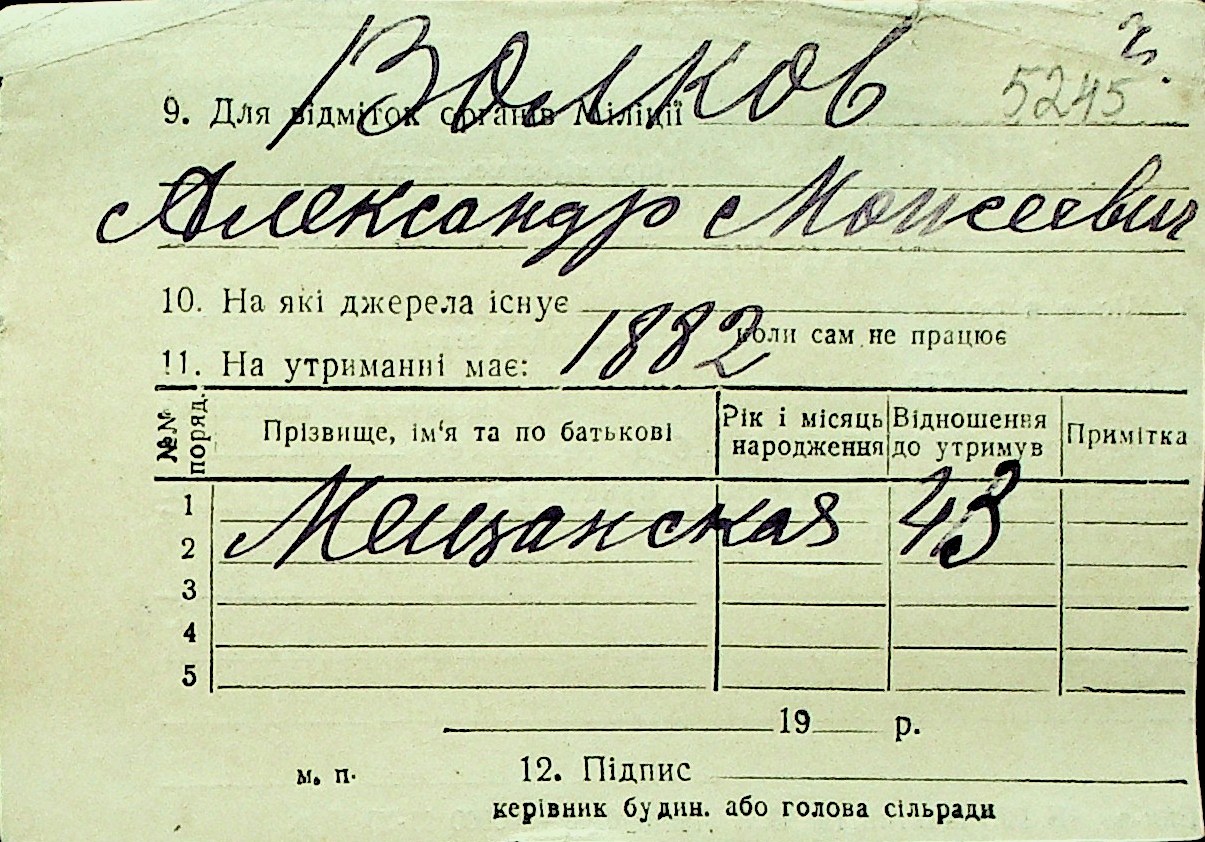 Волков
5245
9. Для відміток органів Міліції
Александр Моисеевич
10. На які джерела існує
коли сам не працює
1882
11. На утриманні має:
№№ поряд.
Прізвище, ім'я та по батькові
Рік і місяць народження
Відношення до утримув
Примітка
1
Мещанская 43
2
3
4
5
19 р.
м. п.
12. Підпис
керівник будин. або голова сільради